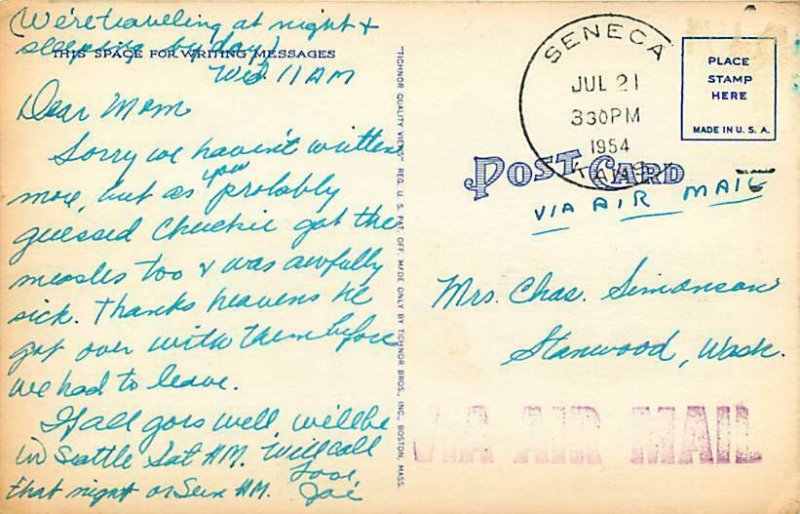 (We're traveling at night &
sleeping by day)
THIS SPACE FOR WRITING MESSAGES
Wed. 11 AM
Dear Mom
Sorry we haven't written
more, but as you probably
guessed Chuckie got the
measles too & was awfully
sick. Thanks heavens he
got over with them before
we had to leave.
If all goes well, we'll be
in Seattle Sat AM. Will call
that night or Sun AM.
Love
"TICHNOR QUALITY VIEWS" REG. U. S. PAT. OFF. MADE ONLY BY TICHNOR BROS., INC. BOSTON, MASS.
SENECA
JUL 21
330PM
1954
KANS.
PLACE
STAMP
HERE
MADE IN U. S. A.
POST CARD
VIA AIR MAIL
Mrs. Chas. Simonson
Stanwood, Wash.
VIA AIR MAIL